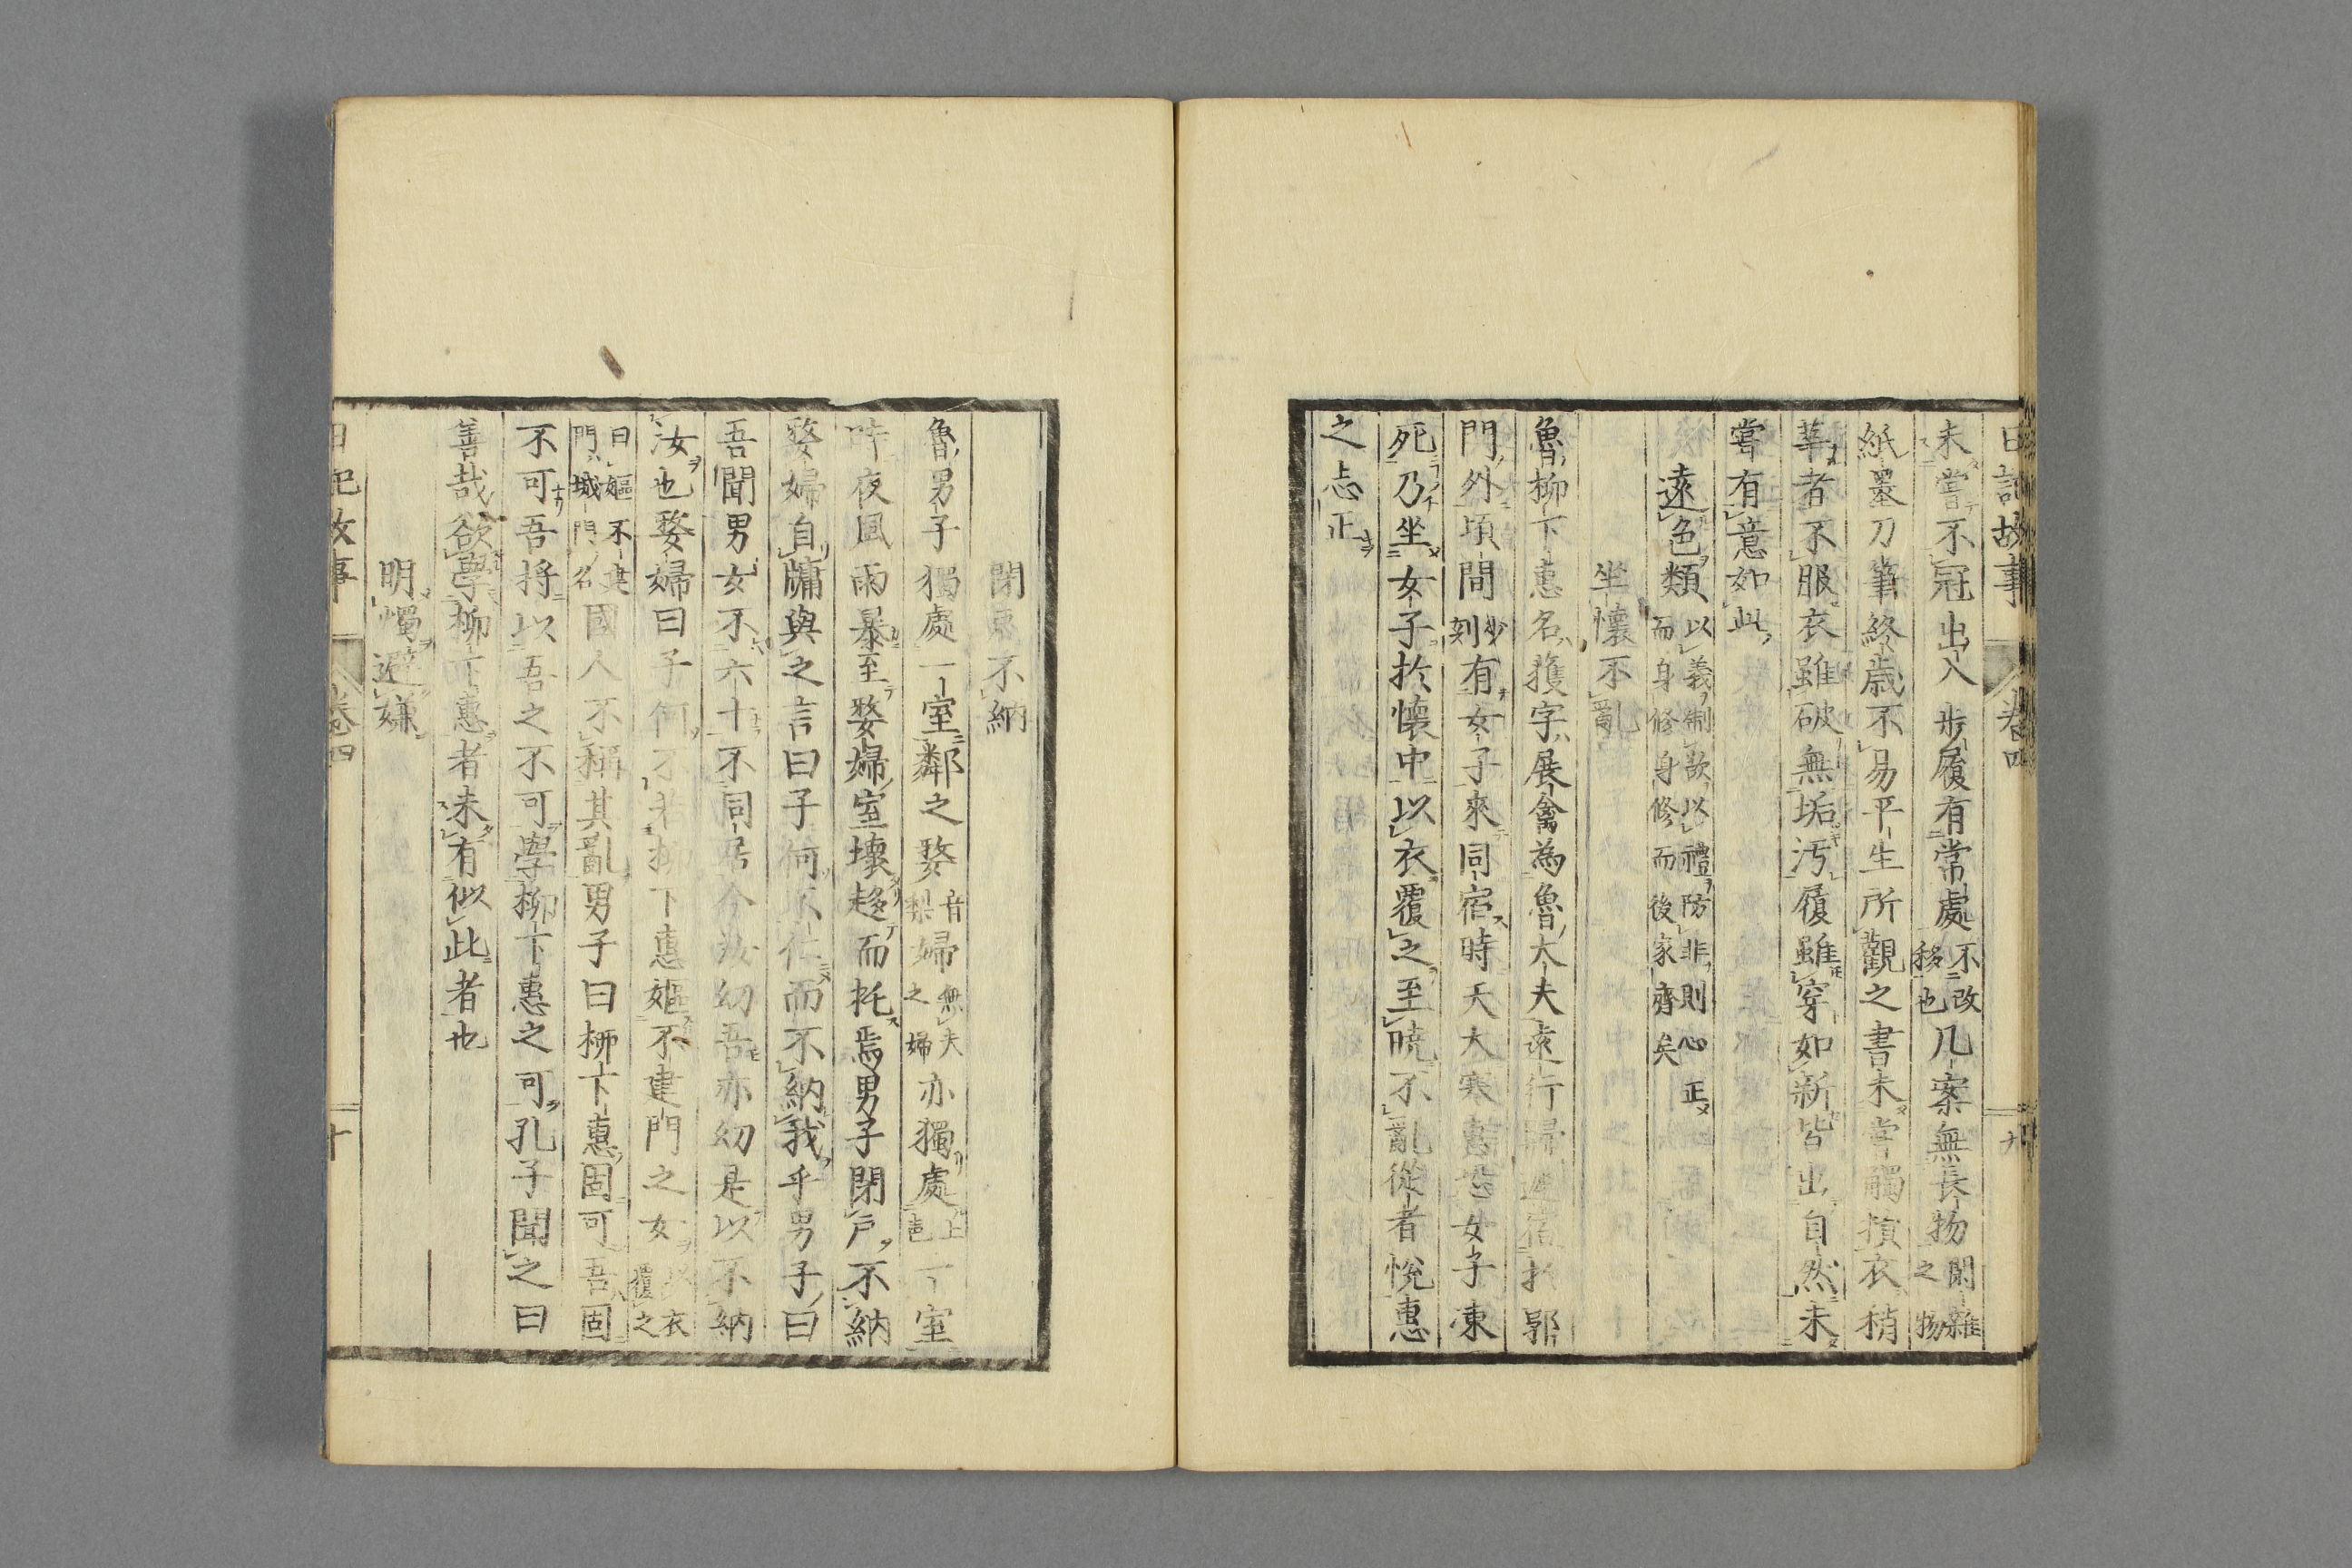 日記故事 卷四 九
未嘗不冠出入步履有常處不改移也几案無長物閑雜之物
紙墨刀筆終歲不易平生所觀之書未嘗觸損衣稍
華者不服衣雖破無垢汚履雖穿如新皆出自然未
嘗有意如此
遠色類以義制欲以禮防非則心正而身修身修而後家齊矣
坐懷不亂
魯柳下惠名獲字展禽為魯大夫遠行歸遲宿於郭
門外頃間少刻有女子來同宿時天大寒惠恐女子凍
死乃坐女子於懷中以衣覆之至曉不亂從者悅惠
之志正
閉戶不納
魯男子獨處一室鄰之婺音梨婦無夫之婦亦獨處上邑一室
時夜風雨暴至婺婦室壞趍而托焉男子閉戶不納
婺婦自牖與之言曰子何不仁而不納我乎男子曰
吾聞男女不六十不同居今汝幼吾亦幼是以不納
汝也婺婦曰子何不若柳下惠嫗不建門之女以衣覆之
曰嫗不建門城門名國人不稱其亂男子曰柳下惠固可吾固
不可吾將以吾之不可學柳下惠之可孔子聞之曰
善哉欲學柳下惠者未有似此者也
明燭避嫌
日記故事 卷四 十